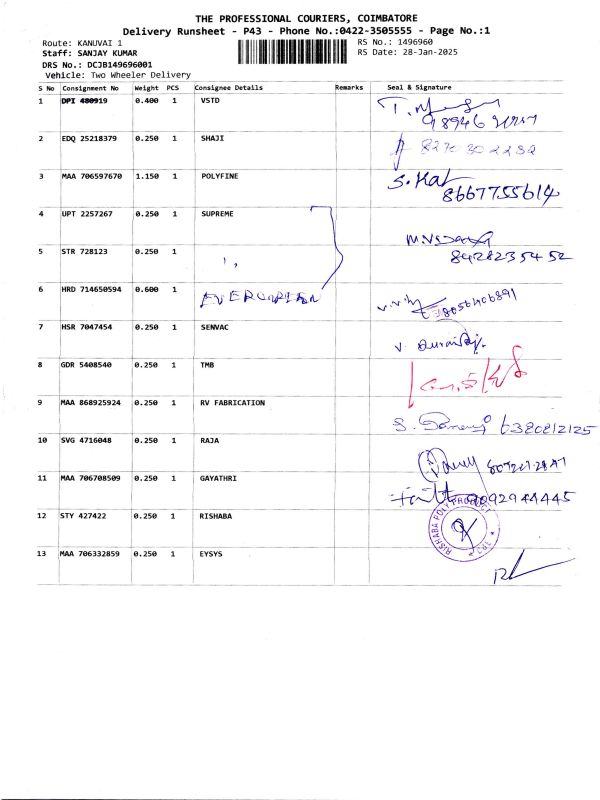 THE PROFESSIONAL COURIERS, COIMBATORE
Delivery Runsheet - P43 - Phone No.:0422-3505555 - Page No.:1
Route: KANUVAI 1
RS No.: 1496960
Staff: SANJAY KUMAR
RS Date: 28-Jan-2025
DRS No.: DCJB149696001
Vehicle: Two Wheeler Delivery
S No Consignment No Weight PCS Consignee Details Remarks Seal & Signature
1 DPI 480919 0.400 1 VSTD
2 EDQ 25218379 0.250 1 SHAJI
8270302232
3 MAA 706597670 1.150 1 POLYFINE
8667755614
4 UPT 2257267 0.250 1 SUPREME
5 STR 728123 0.250 1
8428235452
6 HRD 714650594 0.600 1
8056406891
7 HSR 7047454 0.250 1 SENVAC
8 GDR 5408540 0.250 1 TMB
9 MAA 868925924 0.250 1 RV FABRICATION
6380812125
10 SVG 4716048 0.250 1 RAJA
11 MAA 706708509 0.250 1 GAYATHRI
9092944445
12 STY 427422 0.250 1 RISHABA
RISHABA POLY PRODUCT
13 MAA 706332859 0.250 1 EYSYS